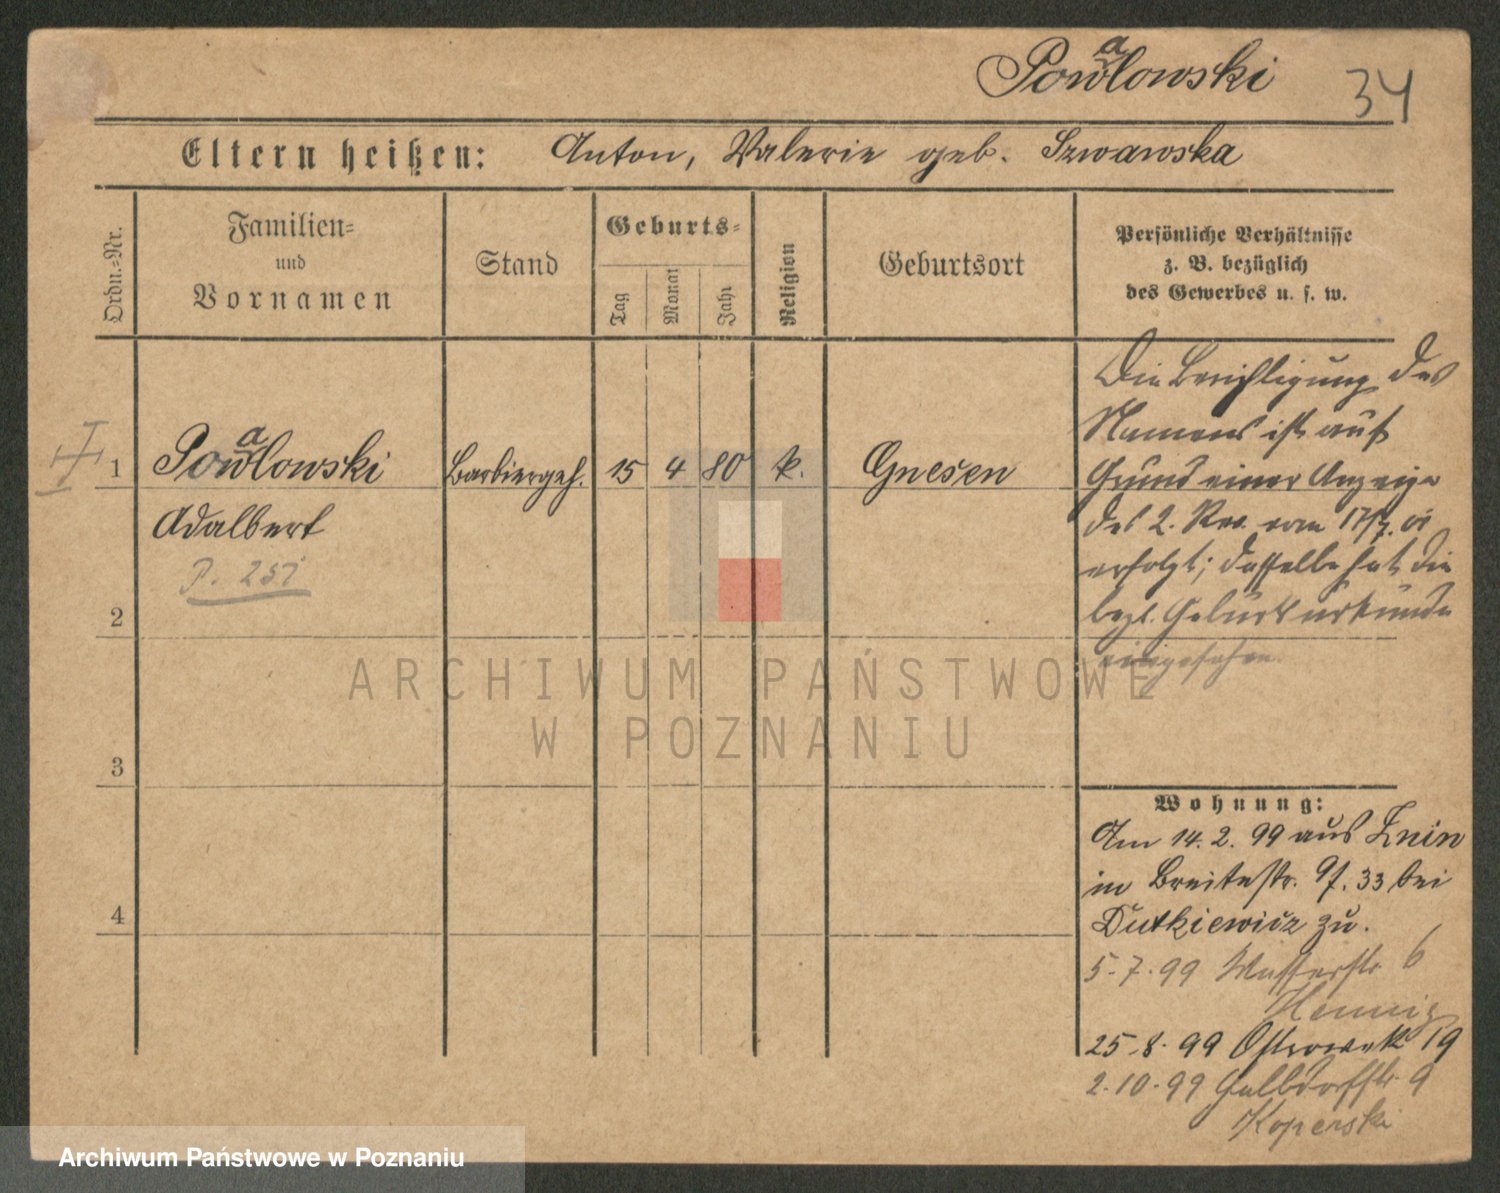 Pawlowski 34
Eltern heißen: Anton, Valerie geb. Szwawska
Ordn.-Nr.
Familien-
und
Vornamen
Stand
Geburts-
Tag
Monat
Jahr
Religion
Geburtsort
Persönliche Verhältnisse
z. B. bezüglich
des Gewerbes u. s. w.
1 Pawlowski Barbiergeh. 15 4 80 k. Gnesen
Adalbert
P. 257
2
3
4
Die Berichtigung des
Namens ist auf
Grund einer Anzeige
des 2. Rev. vom 17/7. 01
erfolgt; dasselbe hat die
bezl. Geburtsurkunde
eingesehen.
Wohnung:
Am 14. 2. 99 aus Znin
in Breitestr. 33 bei
Dutkiewicz zu.
5-7-99 Wasserstr. 6
Hennig
25-8-99 Ostrowek 19
2-10-99 Halbdorfstr. 9
Koperski
ARCHIWUM PAŃSTWOWE
W POZNANIU
Archiwum Państwowe w Poznaniu